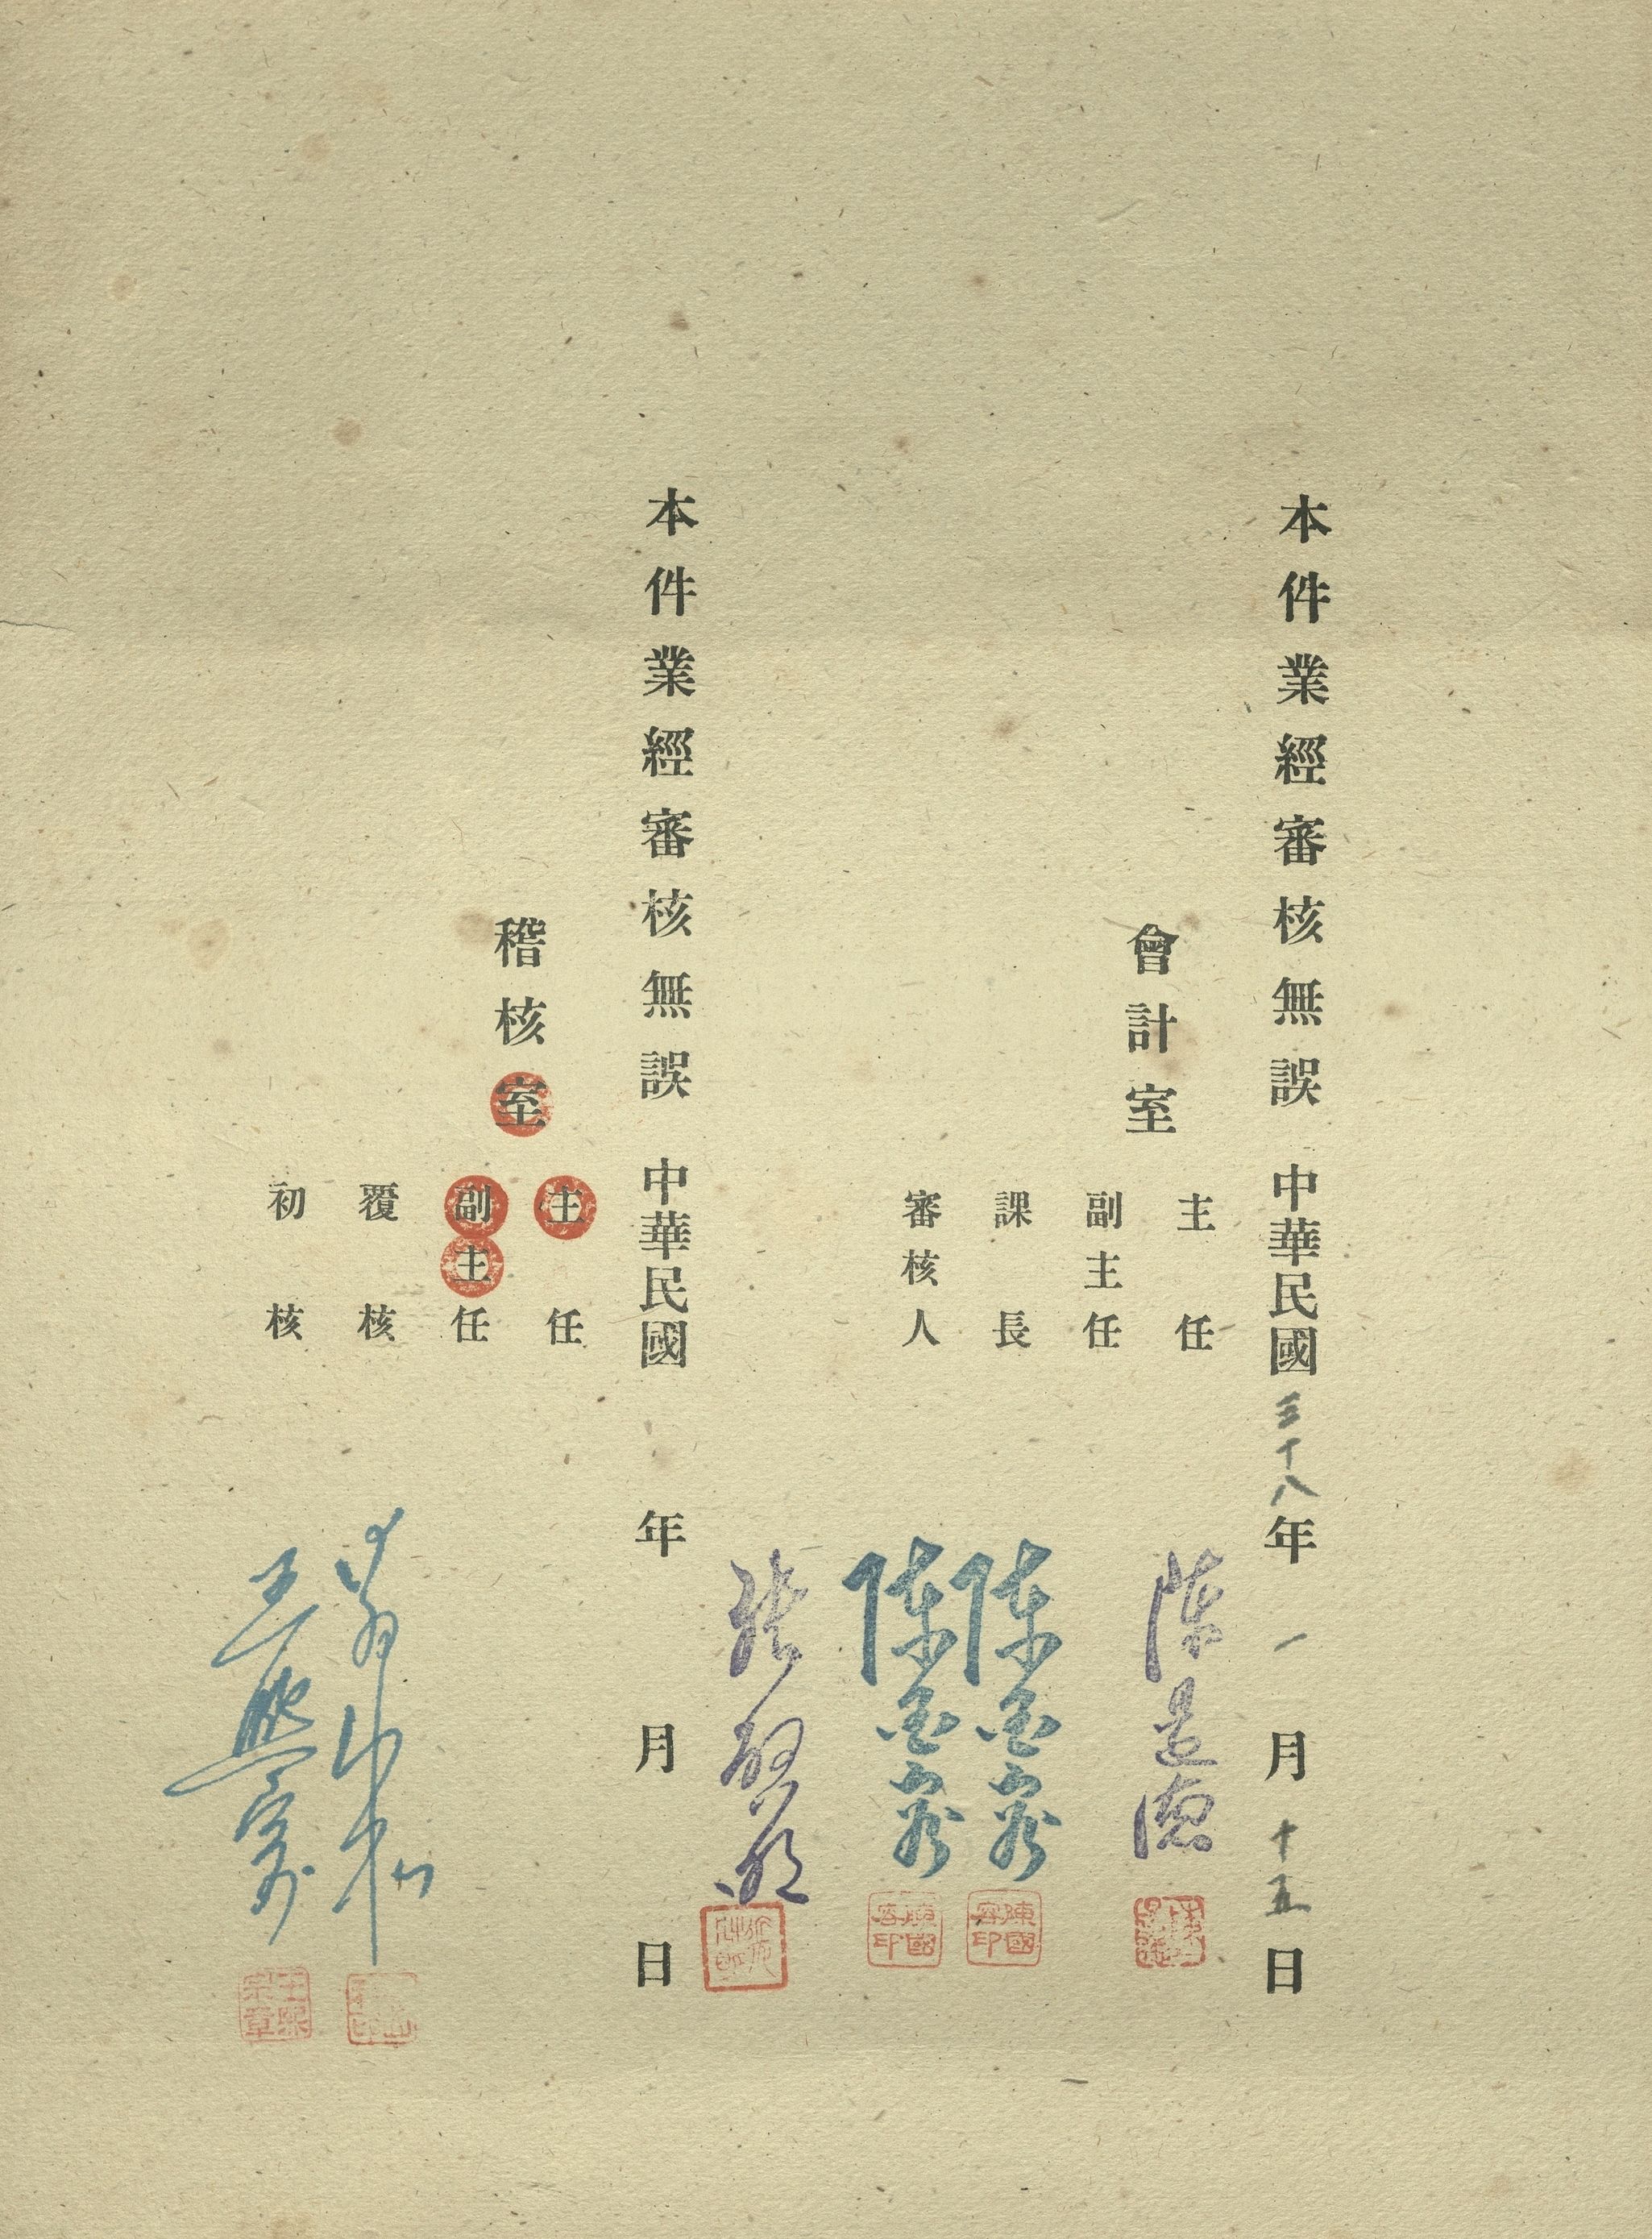 本件業經審核無誤 中華民國三十八年一月十五日
會計室
主任 陳是德
副主任
課長 陳國容
陳國容印
審核人 陳國容
陳國容印
本件業經審核無誤 中華民國 年 月 日
稽核室
主任
副主任
覆核
初核 王熙宗
王熙宗章